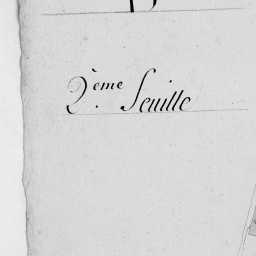 2.ème Feuille